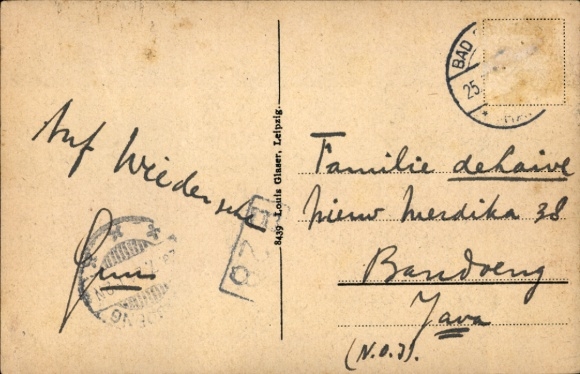 Auf Wiedersehn
8439 Louis Glaser, Leipzig.
BAD
25.
Familie dehaive
Nieuw Merdika 38
Bandoeng
Java
(N.O.J).